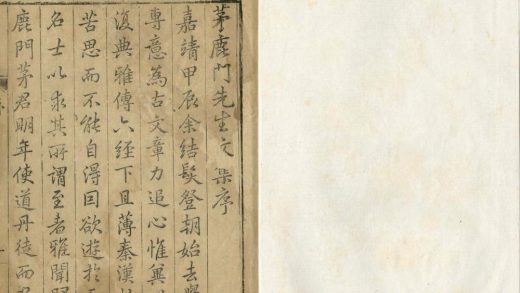 茅鹿門先生文集序
嘉靖甲辰余結髮登朝始去
專意為古文章力追心惟
復典雅傳六經下且薄秦漢
苦思而不能自得因欲遊於
名士以求其所謂至者雅聞
鹿門茅君明年使道丹徒而